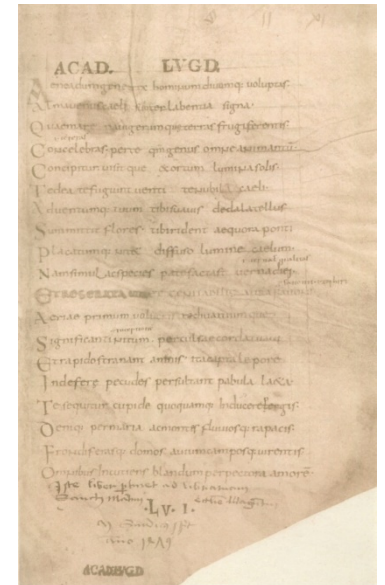 ACAD. LVGD.
Aeneadum genetrix hominum diuumq; voluptas.
Alma uenus caeli subter labentia signa.
Quae mare nauigerum quae terras frugiferentis.
Concelebras per te qm genus omne animantum
Concipitur uisit que exortum lumina solis.
Te dea te fugiunt uenti te nubila caeli.
Aduentumq; tuum tibi suauis dedala tellus
Summittit flores tibi rident aequora ponti
Placatumq; nitet diffuso lumine caelum.
Nam simul ac species patefactast uerna diei.
ET RESERATA genitabilis aura fauoni
Aeriae primum uolucris te diua tuumque
Significant initum. perculsae corda tua ui
Et rapidos tranant amnis ita capta lepore
Inde fere pecudes persultant pabula laeta.
Te sequitur cupide quo quamq; inducere pergis.
Deniq; per maria ac montis fluuiosq; rapacis.
Frondiferasq; domos auium camposq; uirentis
Omnibus incutiens blandum per pectora amorē
Iste liber ptinet ad librariam
Sancti Martini ecclesie
.LV. I.
M Sindicus
1479
ACAD LVGD